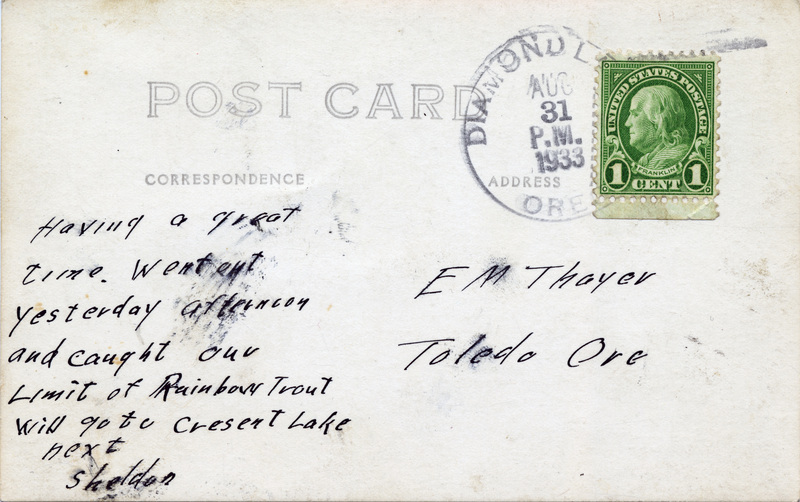 POST CARD
CORRESPONDENCE
ADDRESS
DIAMOND L
AUG
31
P.M.
1933
ORE
UNITED STATES POSTAGE
FRANKLIN
1 CENT 1
Having a great
time. Went out
yesterday afternoon
and caught our
Limit of Rainbow Trout
Will go to Cresent Lake
next
Sheldon
E M Thayer
Toledo Ore